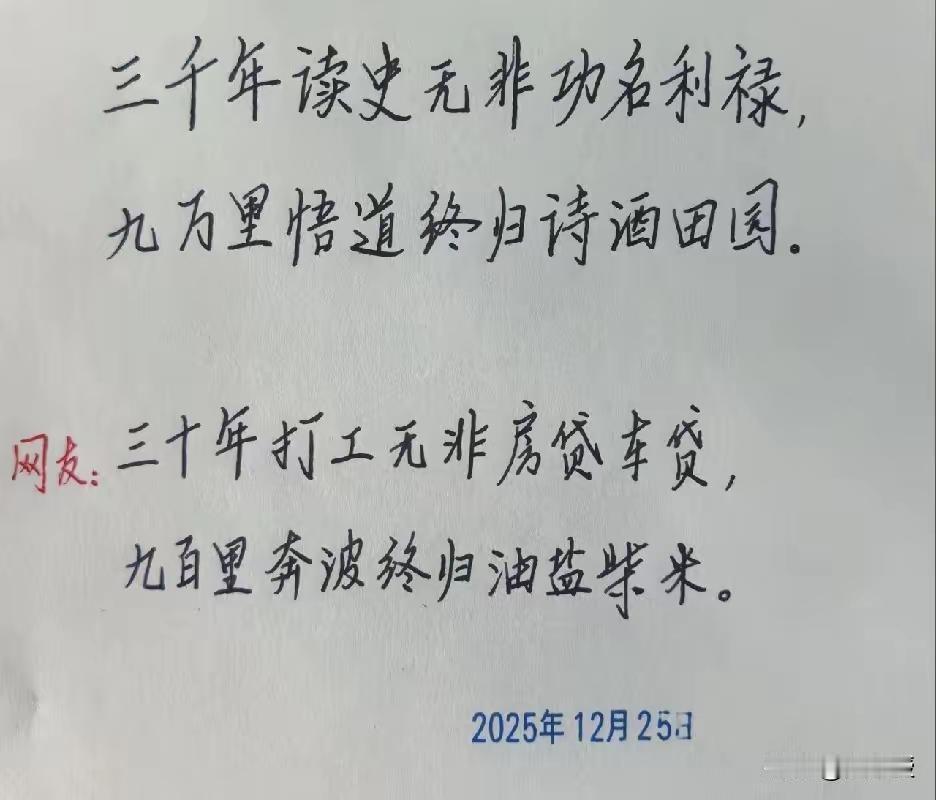 三千年读史无非功名利禄,
九万里悟道终归诗酒田园.
网友: 三十年打工无非房贷车贷,
九百里奔波终归油盐柴米。
2025年12月25日